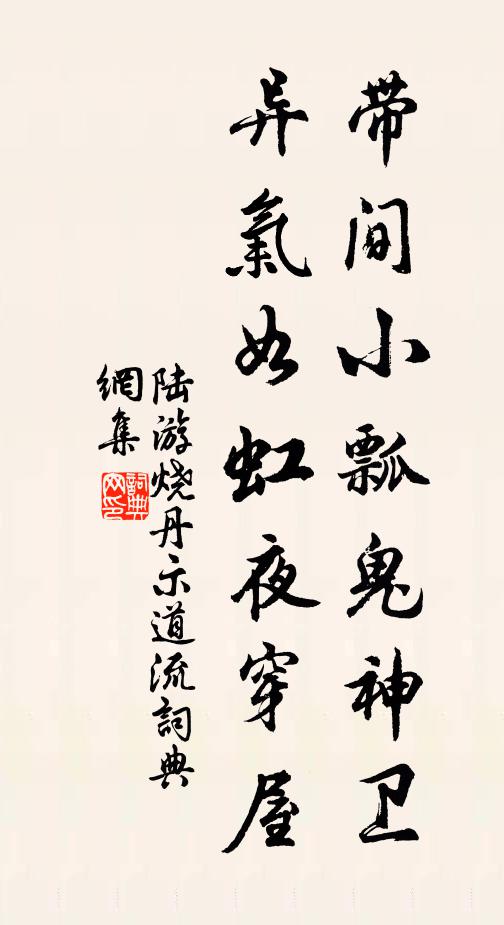 带间小瓢鬼神卫
异氣如虹夜穿屋
陆游烧丹示道流詞典
網集
詞典网印